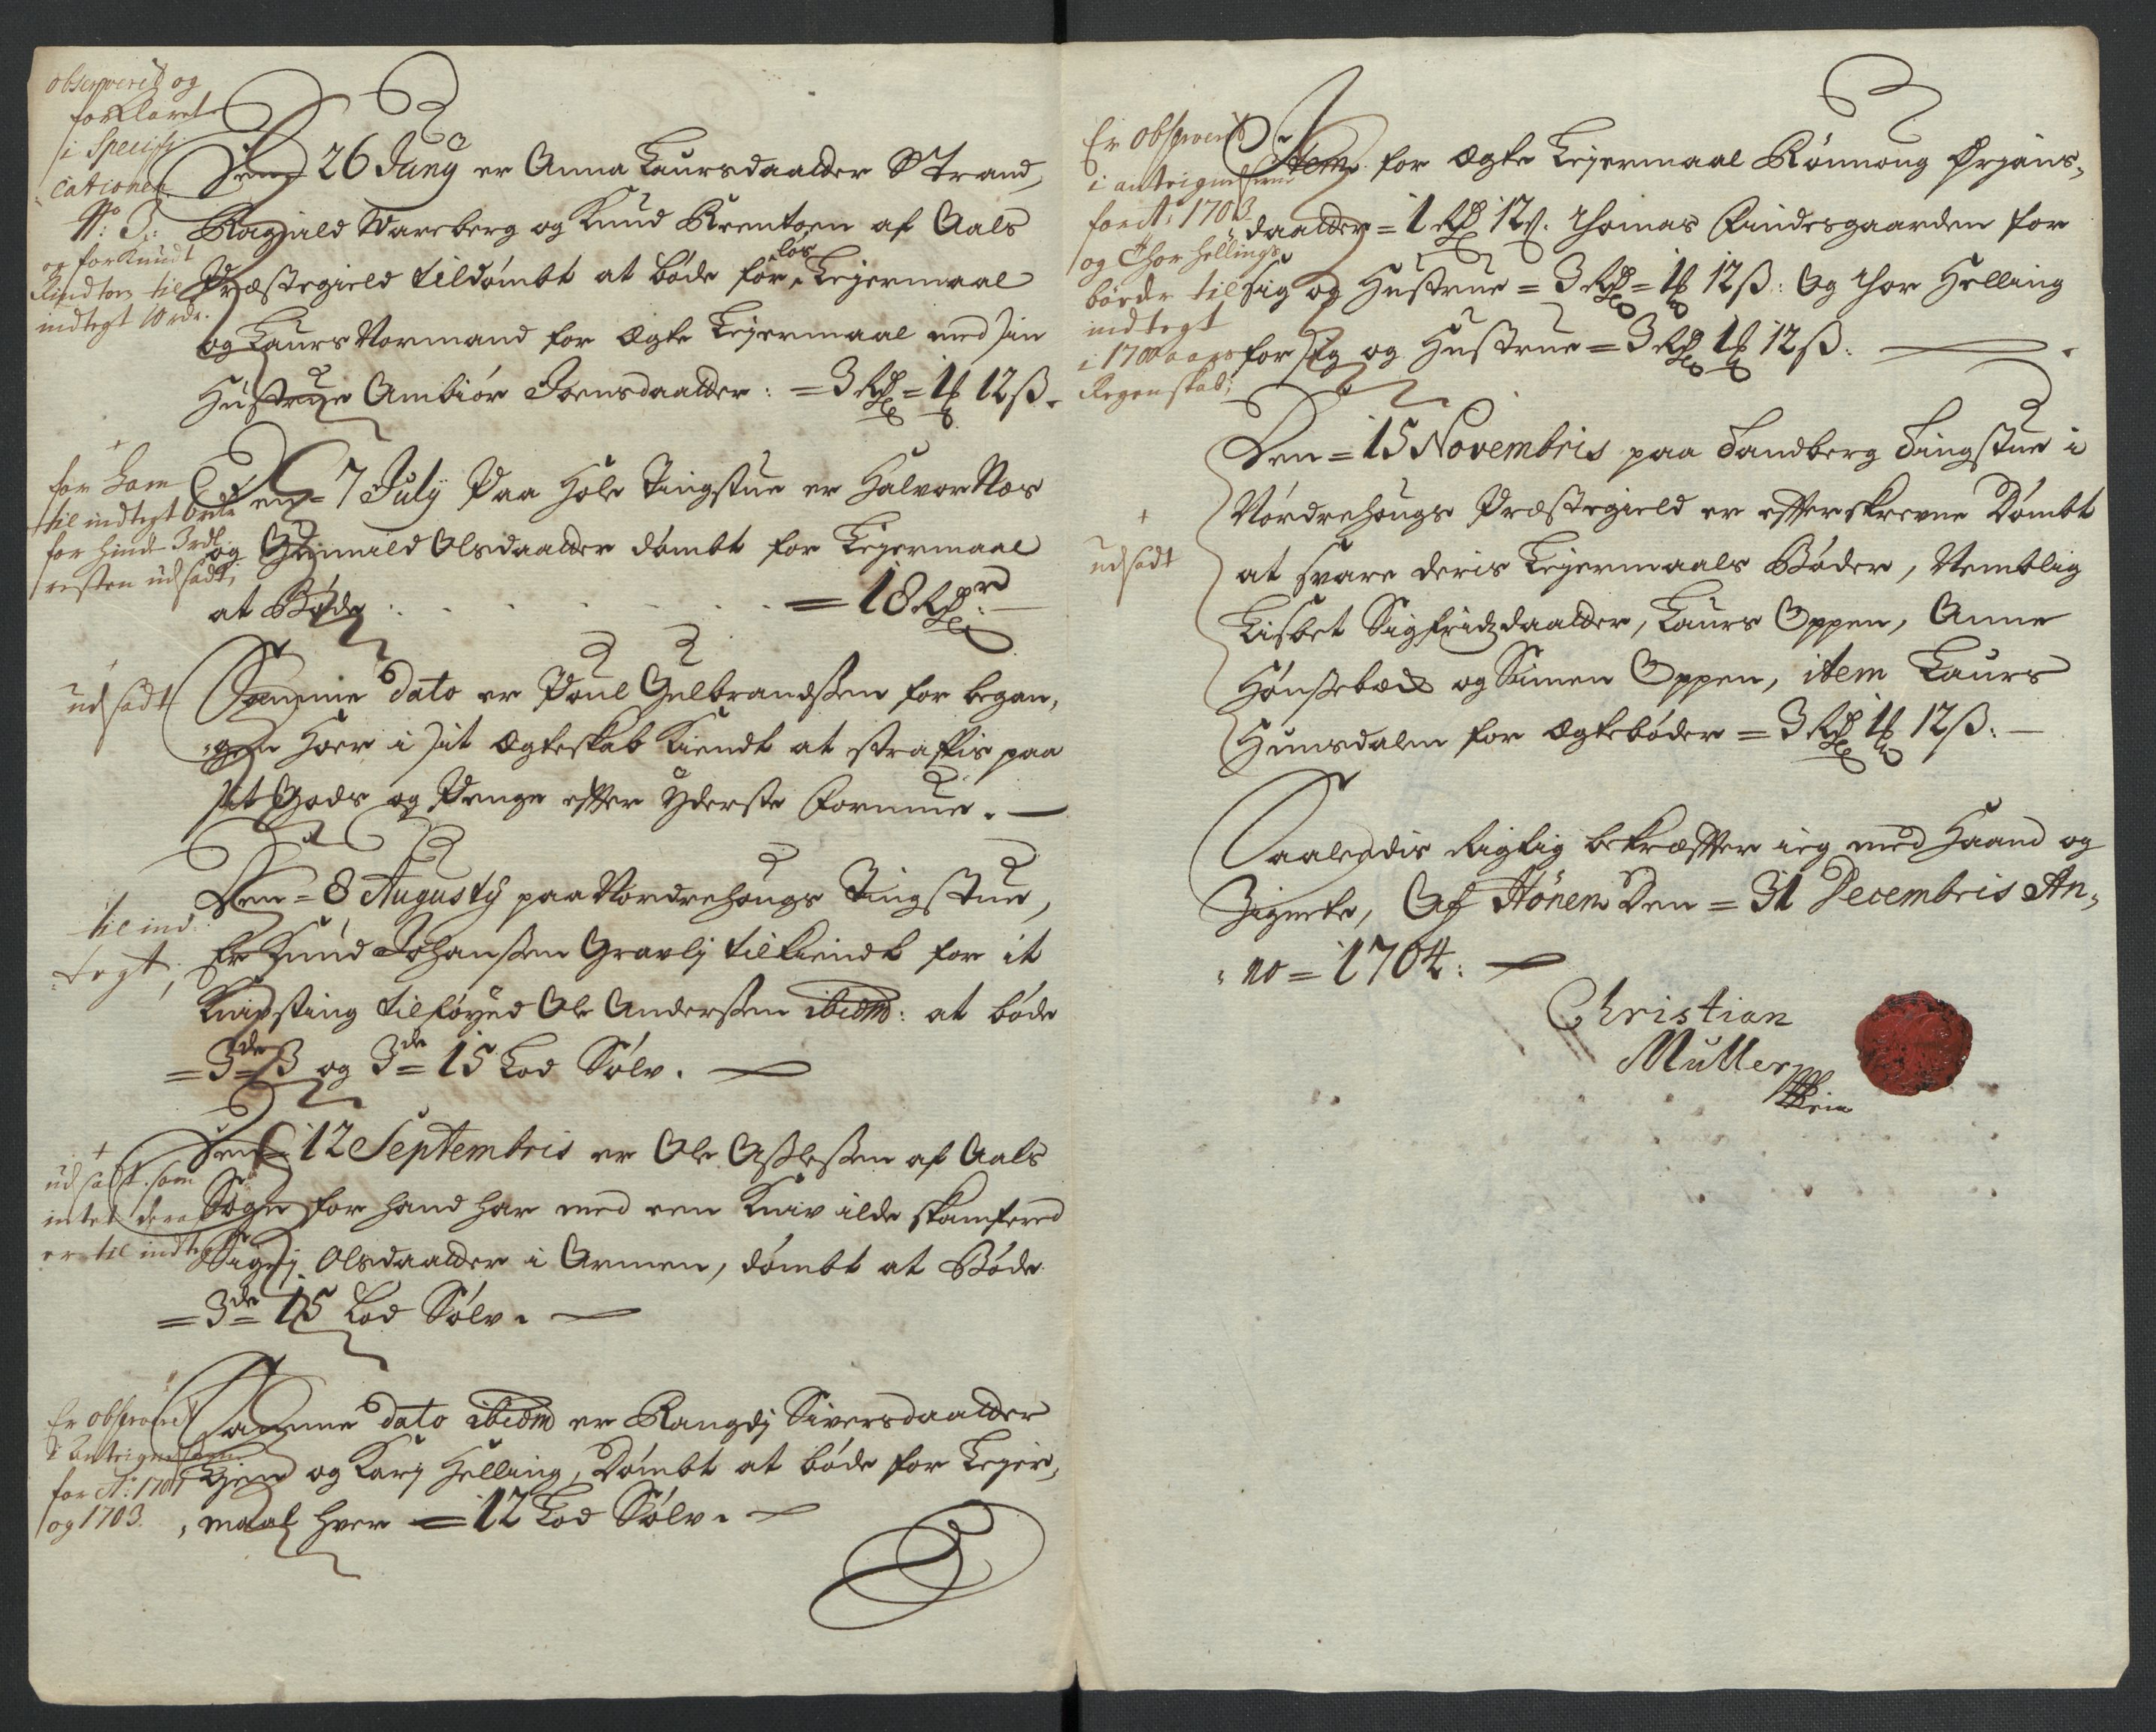 observeret og
forklaret
i Specifi
cationen
No: 3:
og for Knudt
Rindtøn til
indtegt 10 rdr.
Den 26 Juny er Anna Laursdaatter Strand,
Ragnild Vareberg og Knud Reentøen af Aals
Præstegield tildømbt at bøde for løs Leyermaal
og Laurs Normand for Ægte Leyermaal med sin
Hustrue Ambiør Joensdaatter: = 3 Rd = 1 12 ß.
+
for ham
til indtegt
for hinde 3 rdl.
resten udsadt,
Den = 7 July Paa Hole Tingstue er Halvor Næs
og Gunnild Olsdaatter dømbt for Leyermaal
at Bøde . . . . . . . = 18 Rdr: —
+
udsadt
Samme dato er Poul Gulbrandssen for began,
,,gen Hoer i sit Ægteskab kiendt at straffis paa
sit Gods og Penge efter Yderste Formue. —
til ind
tegt,
Den = 8 Augusty paa Nordrehougs Tingstue,
Er Knud Johanssen Gravlj tilkiendt for it
Knivsting tilføyed Ole Anderssen ibidm: at bøde
= 3de 3 og 3de = 15 Lod Sølv. —
+
udsadt som
intet deraf
er til indtegt
Den 12 Septembris er Ole Aslessen af Aals
Sogn for hand har med een Kniv ilde skamfered
Signj Olsdaatter i Armen, dømbt at Bøde
= 3de 15 Lod Sølv. —
Er observeret
i Antegnelserne
for Ao: 1701
og 1703.
Samme dato ibidm er Rangdj Siversdaatter
og Karj Helling, Dømbt at bøde for Leyer,
,,maal hver = 12 Lod Sølv. —
Er observeret
i antegnelserne
for A: 1703.
og Thor Hellings
bøeder til
indtegt
i 1700 aars
Regenskab,
Item for Ægte Leyermaal Rønnoug Ørjans,,
,,daatter = 1 Rd 12 ß. Thomas Findesgaarden for
sig og Hustrue = 3 Rd = 1 12 ß: Og Thor Helling
for sig og Hustrue = 3 Rd 1 12 ß. —
+
udsadt
Den = 15 Novembris paa Sandberg Tingstue i
Nordrehougs Præstegield er efterskrevne Dømbt
at svare deris Leyermaals Bøder, Nemblig
Lisbet Sigfridzdaatter, Laurs Oppen, Anne
Hønssebæck og Simen Oppen, item Laurs
Hunsdalen for Ægtebøder = 3 Rd 1 12 ß: —
Saaledis Rigtig bekræfter ieg med Haand og
Zignete, Af Hønen Den = 31 Decembris An,,
,,no = 1704: —
Christian
Muller